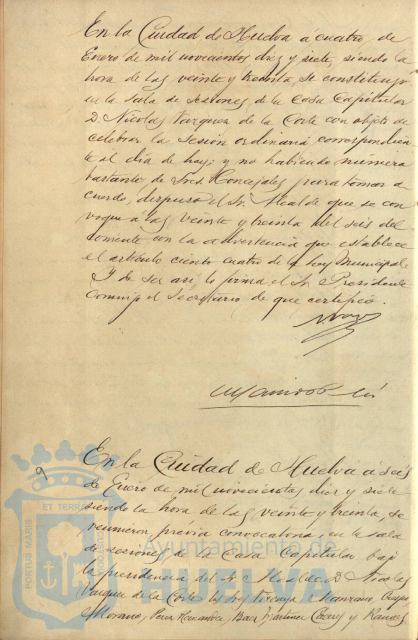 En la Ciudad de Huelva a cuatro de
Enero de mil novecientos diez y siete, siendo la
hora de las veinte y treinta, se constituyó
en la Sala de sesiones de la Casa Capitular
D. Nicolas Vazquez de la Corte con objeto de
celebrar la sesión ordinaria correspondien
te al dia de hoy; y no habiendo número
bastante de Sres. Concejales para tomar a
cuerdo, dispuso el Sr. Alcalde que se con
voque a las veinte y treinta del seis del
corriente con la advertencia que establece
el artículo ciento cuatro de la ley Municipal.
Y de ser así lo firma el Sr. Presidente
conmigo el Secretario de que certifico.
9
En la Ciudad de Huelva á seis
de Enero de mil novecientos diez y siete
siendo la hora de las veinte y treinta, se
reunieron, prévia convocatoria, en la sala
de sesiones de la Casa Capitular bajo
la presidencia del Sr. Alcalde D. Nicolas
Vazquez de la Corte los Sres.
Moreno, Hernandez, Martinez y
PORTUS MARIS
ET TERRAE
Ayuntamiento de
HUELVA